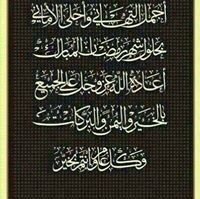 أجمل التهاني وأحلى الأماني
بحلول شهر رمضان المبارك
أعاده الله عز وجل على الجميع
بالخير واليمن والبركات
وكل عام وأنتم بخير